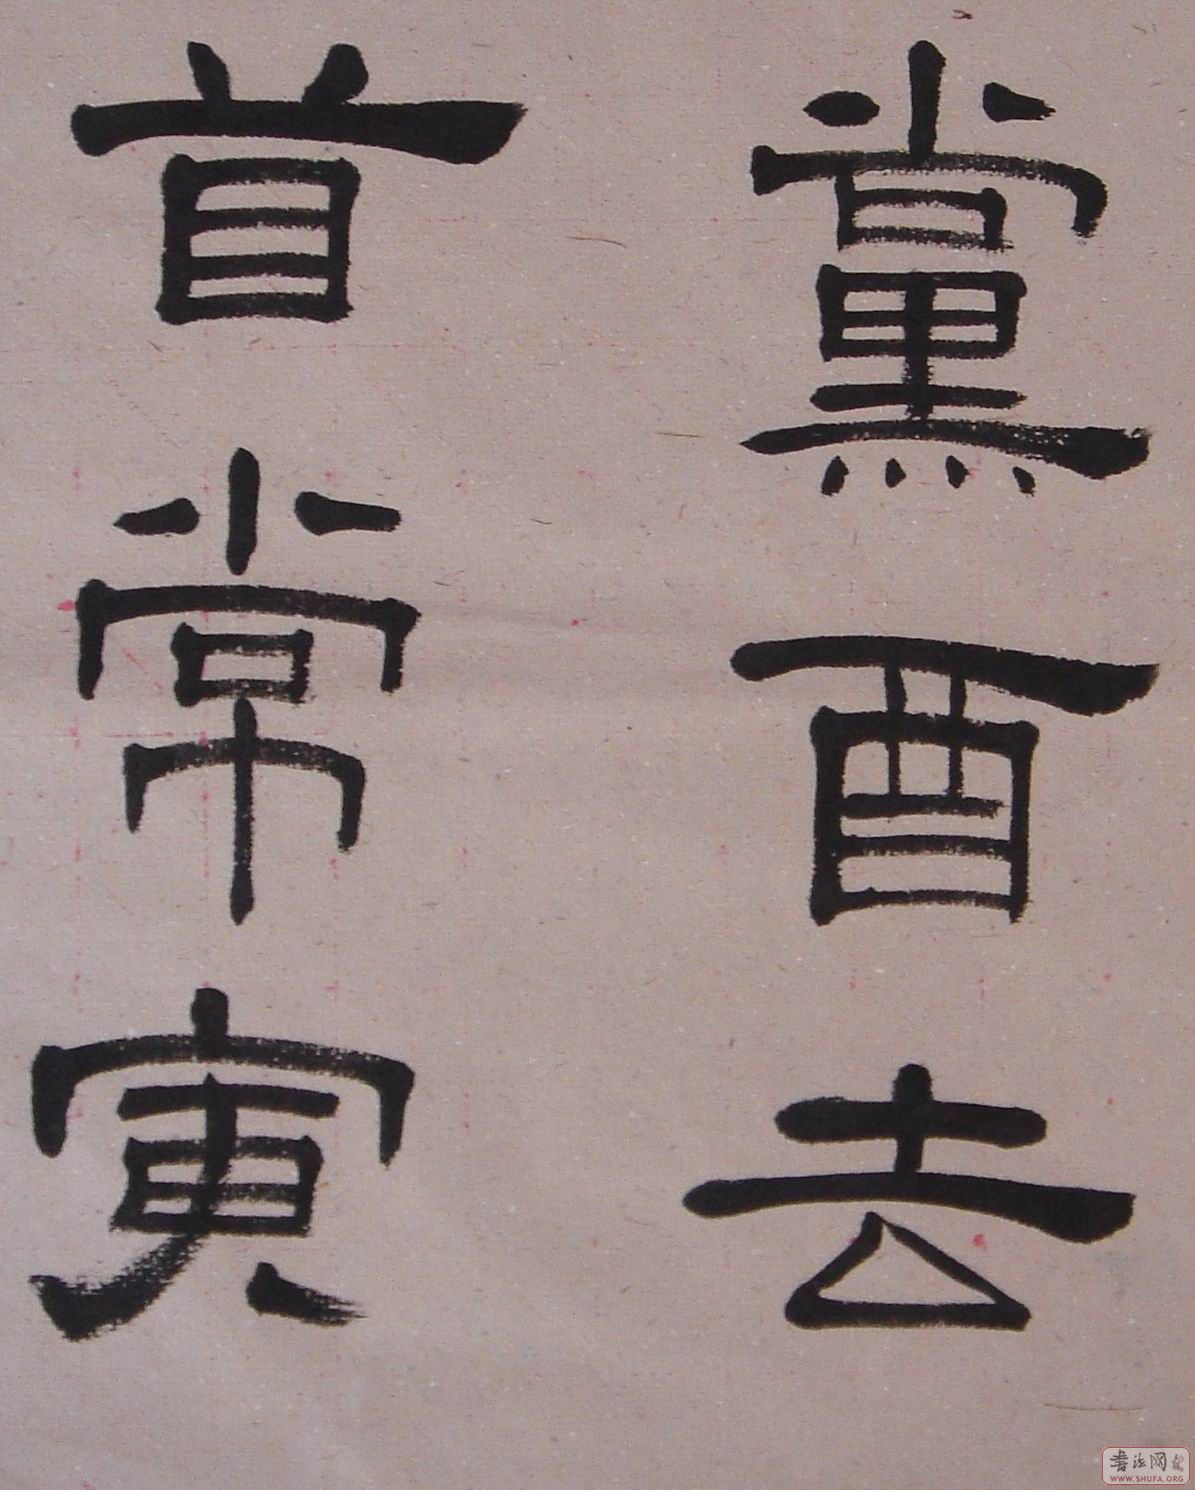 黨酉去
首常寅
書法网
WWW.SHUFA.ORG